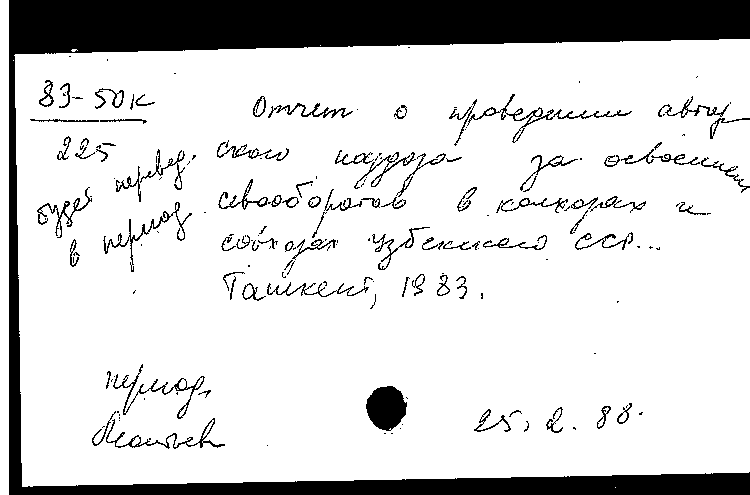 83-50к
225
будет перевед.
в период.
Отчет о проведении автор
ского надзора за освоением
севооборотов в колхозах и
совхозах Узбекской ССР...
Ташкент, 1983.
период.
Леонтьев
25.2.88.